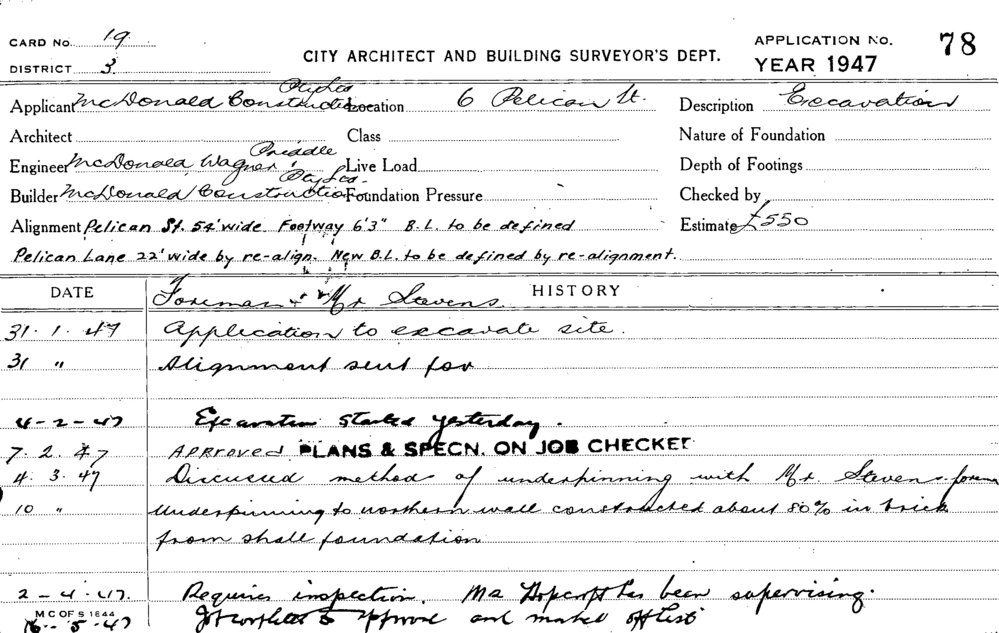 CARD No. 19
DISTRICT 3
CITY ARCHITECT AND BUILDING SURVEYOR'S DEPT.
APPLICATION No. 78
YEAR 1947
Applicant McDonald Construction Pty Ltd Location 6 Pelican St. Description Excavation
Architect Class Nature of Foundation
Engineer McDonald Wagner Priddle Live Load Depth of Footings
Builder McDonald Construction Pty Ltd. Foundation Pressure Checked by
Alignment Pelican St. 54' wide Footway 6'3" B.L. to be defined Estimate £550
Pelican Lane 22' wide by re-align. New B.L. to be defined by re-alignment.
DATE HISTORY
Foreman Mr Stevens
31.1.47 Application to excavate site.
31 " Alignment sent for
4-2-47 Excavation started yesterday.
7.2.47 APPROVED PLANS & SPECN. ON JOB CHECKED
4.3.47 Discussed methods of underpinning with Mr. Stevens
10 " Underpinning to northern wall constructed about 80% in brick
from shall foundation
2-4-47. Requires inspection. Mr Hopcroft has been supervising.
M C OF S 1844
5-47 approve and mark off list